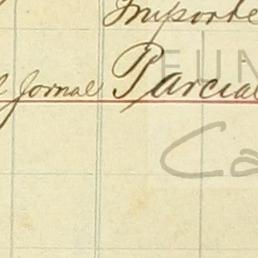 Importe
l Jornal Parcial
FUN
Ca